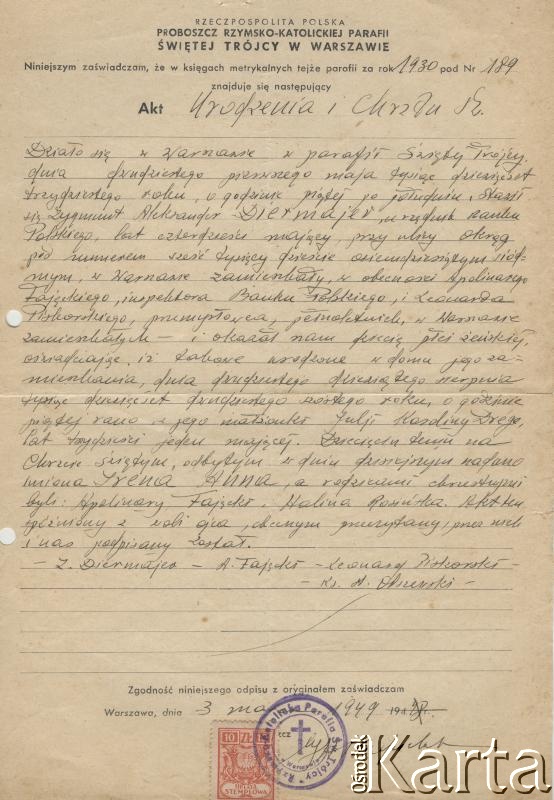 RZECZPOSPOLITA POLSKA
PROBOSZCZ RZYMSKO-KATOLICKIEJ PARAFII
ŚWIĘTEJ TRÓJCY W WARSZAWIE
Niniejszym zaświadczam, że w księgach metrykalnych tejże parafii za rok 1930 pod Nr 189
znajduje się następujący
Akt Urodzenia i Chrztu Św.
Działo się w Warszawie w parafii Świętej Trójcy,
dnia dwudziestego pierwszego maja tysiąc dziewięćset
trzydziestego roku, o godzinie piątej po południu. Stawił
się Zygmunt Aleksander Diermajer, urzędnik Banku
Polskiego, lat czterdzieści mający, przy ulicy Okrąg
pod numerem sześć tysięcy dwieście osiemdziesiątym siód-
mym, w Warszawie zamieszkały, w obecności Apolinarego
Fajęckiego, inspektora Banku Polskiego, i Leonarda
Piskorskiego, przemysłowca, pełnoletnich, w Warszawie
zamieszkałych — i okazał nam dziecię płci żeńskiej,
oświadczając, iż takowe urodzone w domu jego za-
mieszkania, dnia dwudziestego dziewiątego sierpnia
tysiąc dziewięćset dwudziestego szóstego roku, o godzinie
piątej rano z jego małżonki Julji Karoliny Drege,
lat trzydzieści jeden mającej. Dziecięciu temu na
Chrzcie Świętym, odbytym w dniu dzisiejszym nadano
imiona Irena Anna, a rodzicami chrzestnymi
byli: Apolinary Fajęcki i Halina Akt ten
spóźniony z woli ojca, obecnym przeczytany, przez nich
i nas podpisany został.
— Z. Diermajer — A. Fajęcki — Leonard Piskorski —
— Ks.
Zgodność niniejszego odpisu z oryginałem zaświadczam
Warszawa, dnia 3 1949 194
10 ZŁ
OPŁATA
STEMPLOWA
Parafia Św. Trójcy
w Warszawie
Ośrodek
Karta